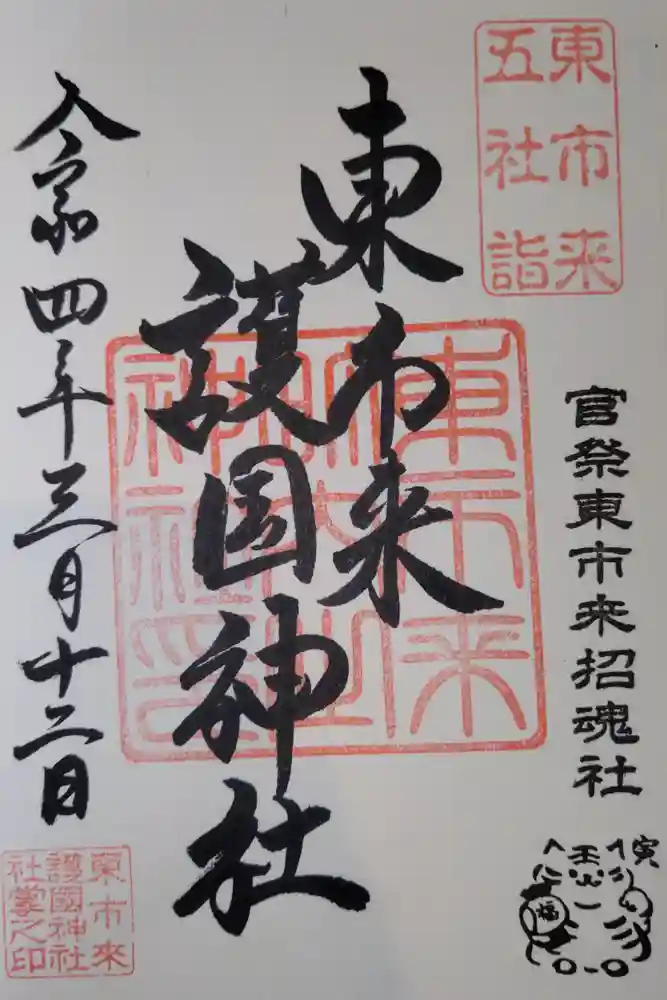 東市来
五社詣
官祭東市来招魂社
東市来
護国神社
令和四年三月十二日
東市来
護國神社
社掌之印
寅
福